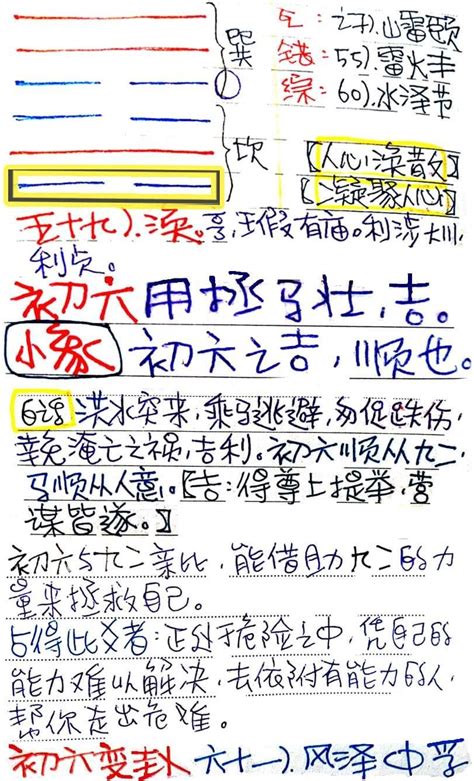 巽
互:27).山雷颐
错:55).雷火丰
综:60).水泽节
坎
【人心涣散】
【凝聚人心】
五十九).涣。亨,王假有庙。利涉大川,
利贞。
初六用拯马壮,吉。
小象 初六之吉,顺也。
628 洪水突来,乘马逃避,匆促跌伤,
幸免淹亡之祸,吉利。初六顺从九二,
马顺从人意。【吉:得尊上提举,营
谋皆遂。】
初六与九二亲比,能借助九二的力
量来拯救自己。
占得此爻者:正处于危险之中,凭自己的
能力难以解决,去依附有能力的人,
帮你走出危难。
初六变卦 六十一).风泽中孚